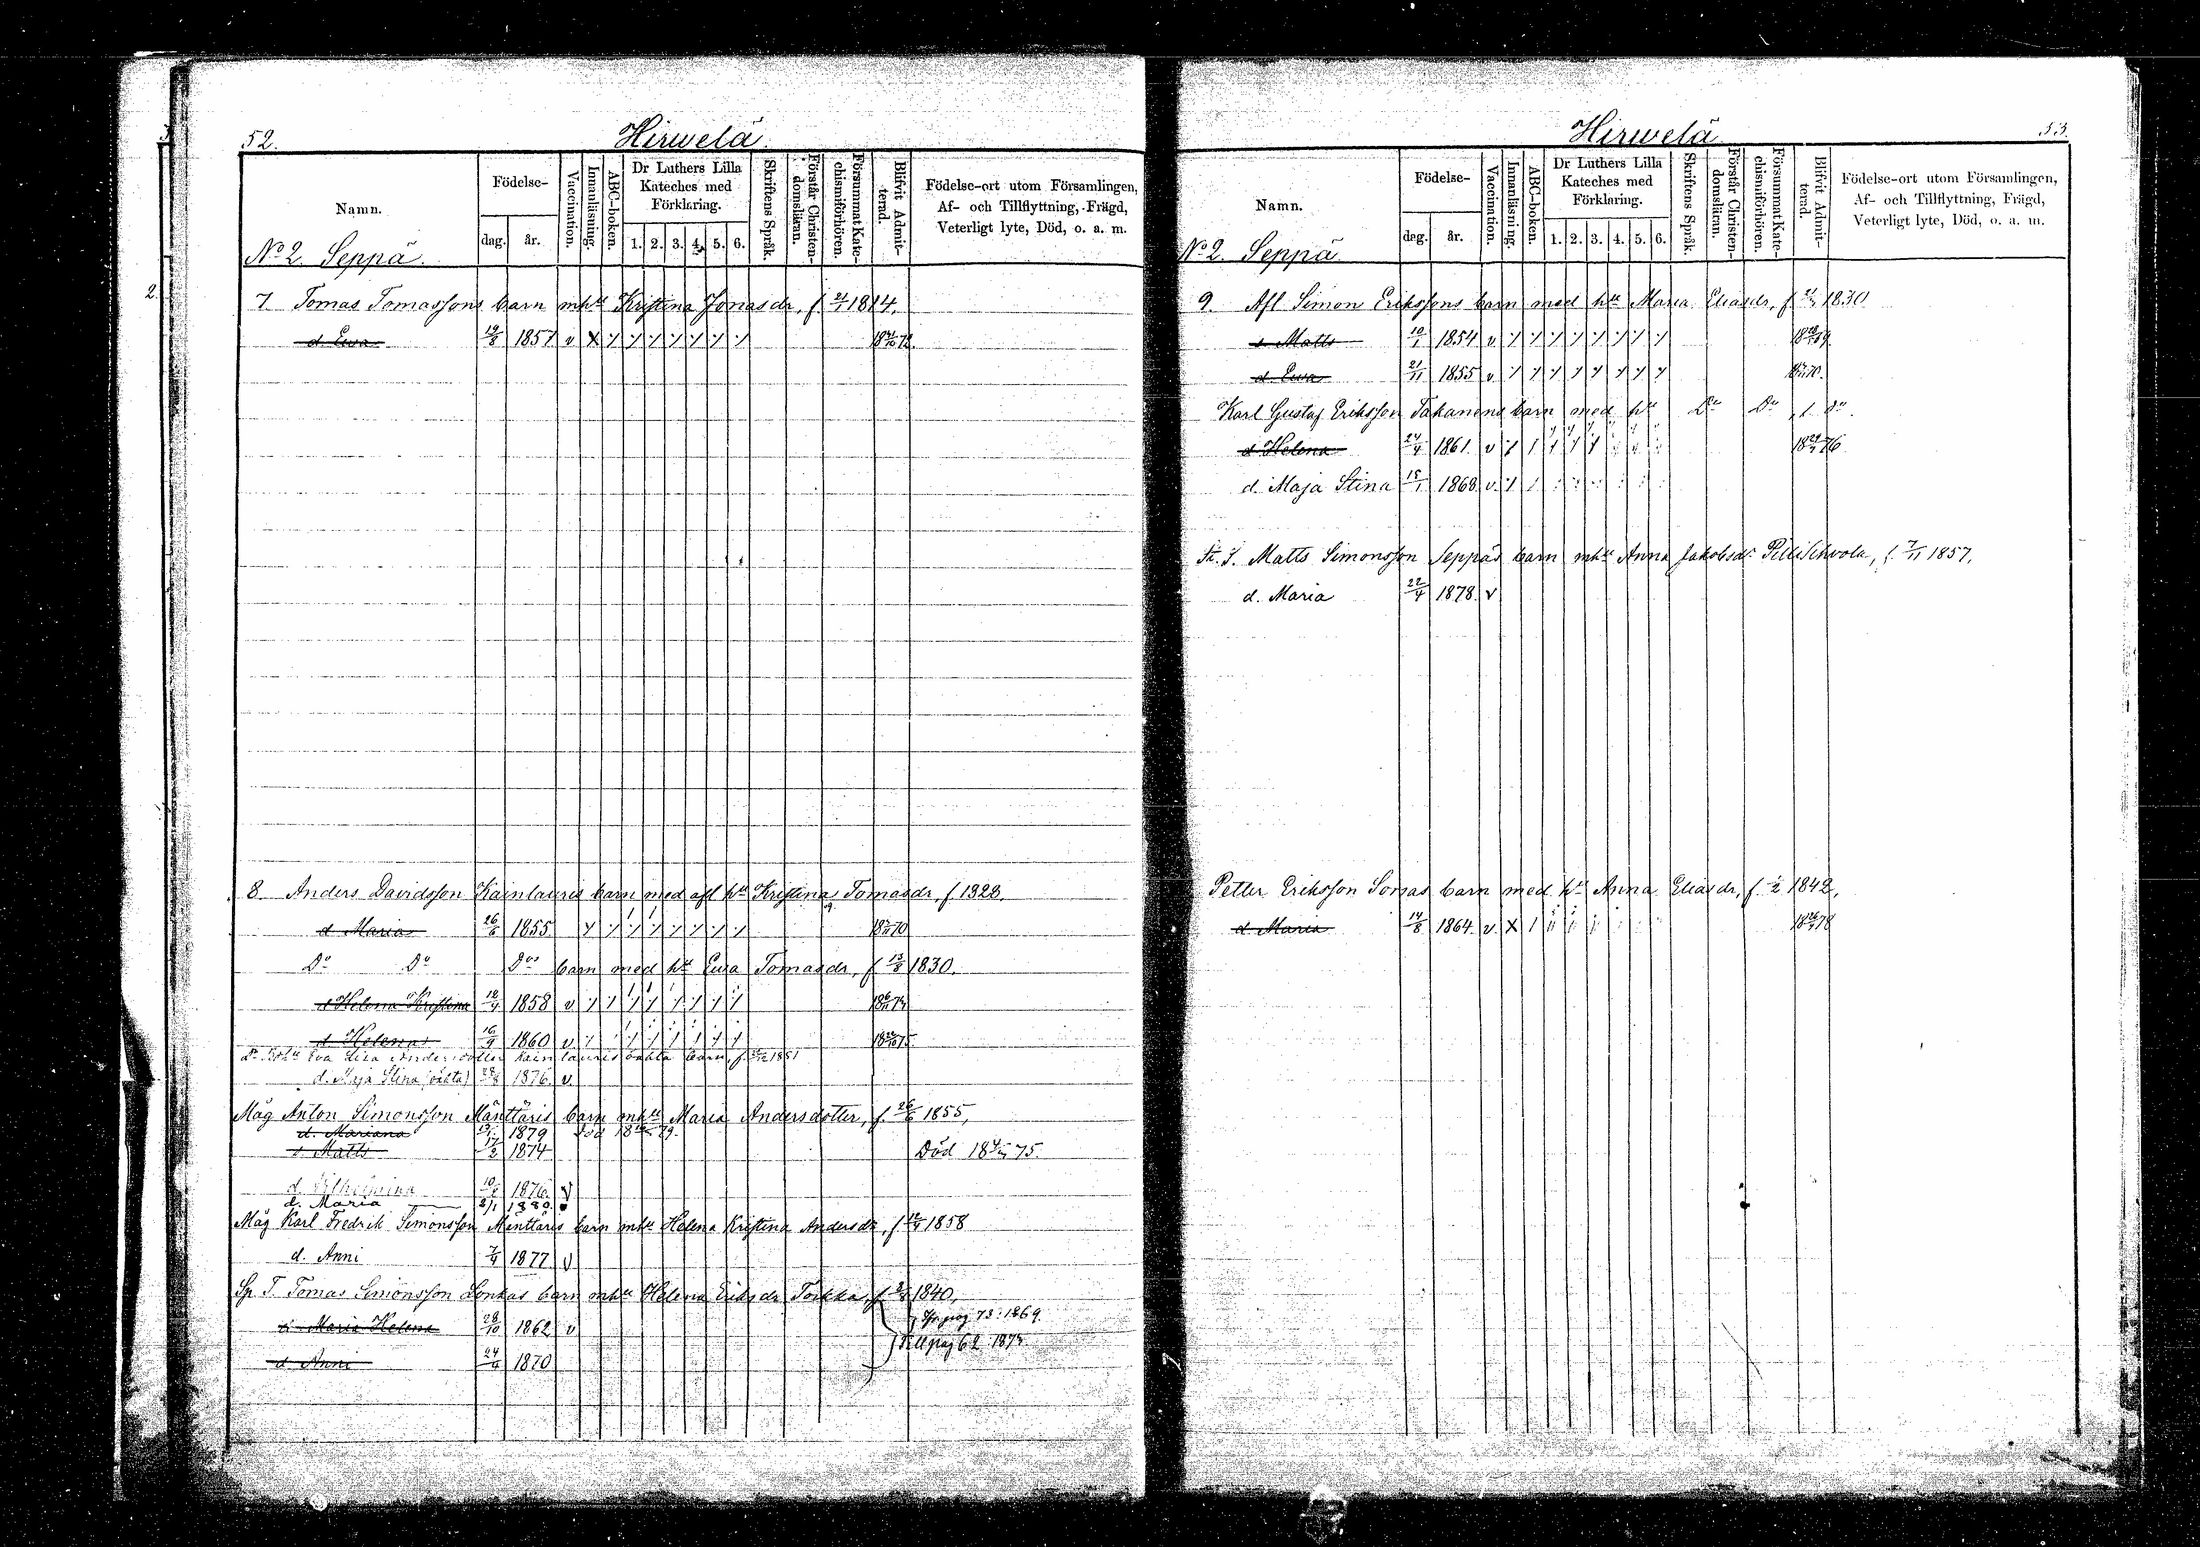 52.
Hirwelä
Namn.
Födelse-
dag.
år.
Vaccination.
Innanläsning.
ABC-boken.
Dr Luthers Lilla
Kateches med
Förklaring.
1. 2. 3. 4. 5. 6.
Skriftens Språk.
Förstår Christen-
domsläran.
Försummat Kate-
chismiförhören.
Blifvit Admit-
terad.
Födelse-ort utom Församlingen,
Af- och Tillflyttning, Frägd,
Veterligt lyte, Död, o. a. m.
No 2. Seppä.
7 Tomas Tomassons barn mhu Kristina Jonasdr, f. 21/1 1814.
d Ewa 19/8 1857 v
8 Anders Davidsson Kainlauris barn med afl hu Kristina Tomasdr, f 1828.
d Maria 26/6 1855 18 70
Do Do Dos barn med hu Ewa Tomasdr, f 13/8 1830.
d Helena Kristina 12/4 1858 v
d Helena 16/9 1860 v 18 75
Eva Lisa Andersdotter Kainlauris oäkta barn, f. 1851
d. Maja Stina (oäkta) 28/8 1876 v
Måg Anton Simonsson Mänttäris barn mhu Maria Andersdotter, f. 26/6 1855,
d. Mariana 1879 Död 18 79.
s Matts 17/2 1874 Död 18 75.
d. Vilhelmina 1876 v
d. Maria 2/1 1880.
Måg Karl Fredrik Simonsson Mänttäris barn mhu Helena Kristina Andersdr, f 12/4 1858
d. Anni 7/4 1877 v
Sp. T. Tomas Simonsson Lonkas barn mhu Helena Eriksdr Toikka, f 1840,
d Maria Helena 28/10 1862 v fr. pag 73: 1869.
Till pag 62 187
d Anni 1870
Hirwelä
53.
Namn.
Födelse-
dag.
år.
Vaccination.
Innanläsning.
ABC-boken.
Dr Luthers Lilla
Kateches med
Förklaring.
1. 2. 3. 4. 5. 6.
Skriftens Språk.
Förstår Christen-
domslänn.
Försummat Kate-
chismiförhören.
Blifvit Admit-
terad.
Födelse-ort utom Församlingen,
Af- och Tillflyttning, Frägd,
Veterligt lyte, Död, o. a. m.
No 2. Seppä
9. Afl Simon Erikssons barn med hu Maria Eliasdr, f 1830
s Matts 10/1 1854 v 18 69
d Ewa 21/11 1855 v 70.
Karl Gustaf Eriksson Takanens barn med hu Do Do, f. do.
d Helena 24/4 1861. v 18 76
d. Maja Stina 15/1 1868 v.
Matts Simonsson Seppäs barn mhu Anna Jakobsdr Pillisihvola, f. 7/11 1857.
d. Maria 22/4 1878. v
Petter Eriksson Somas barn med hu Anna Eliasdr, f 1842,
d Maria 14/8 1864. v. 18 78